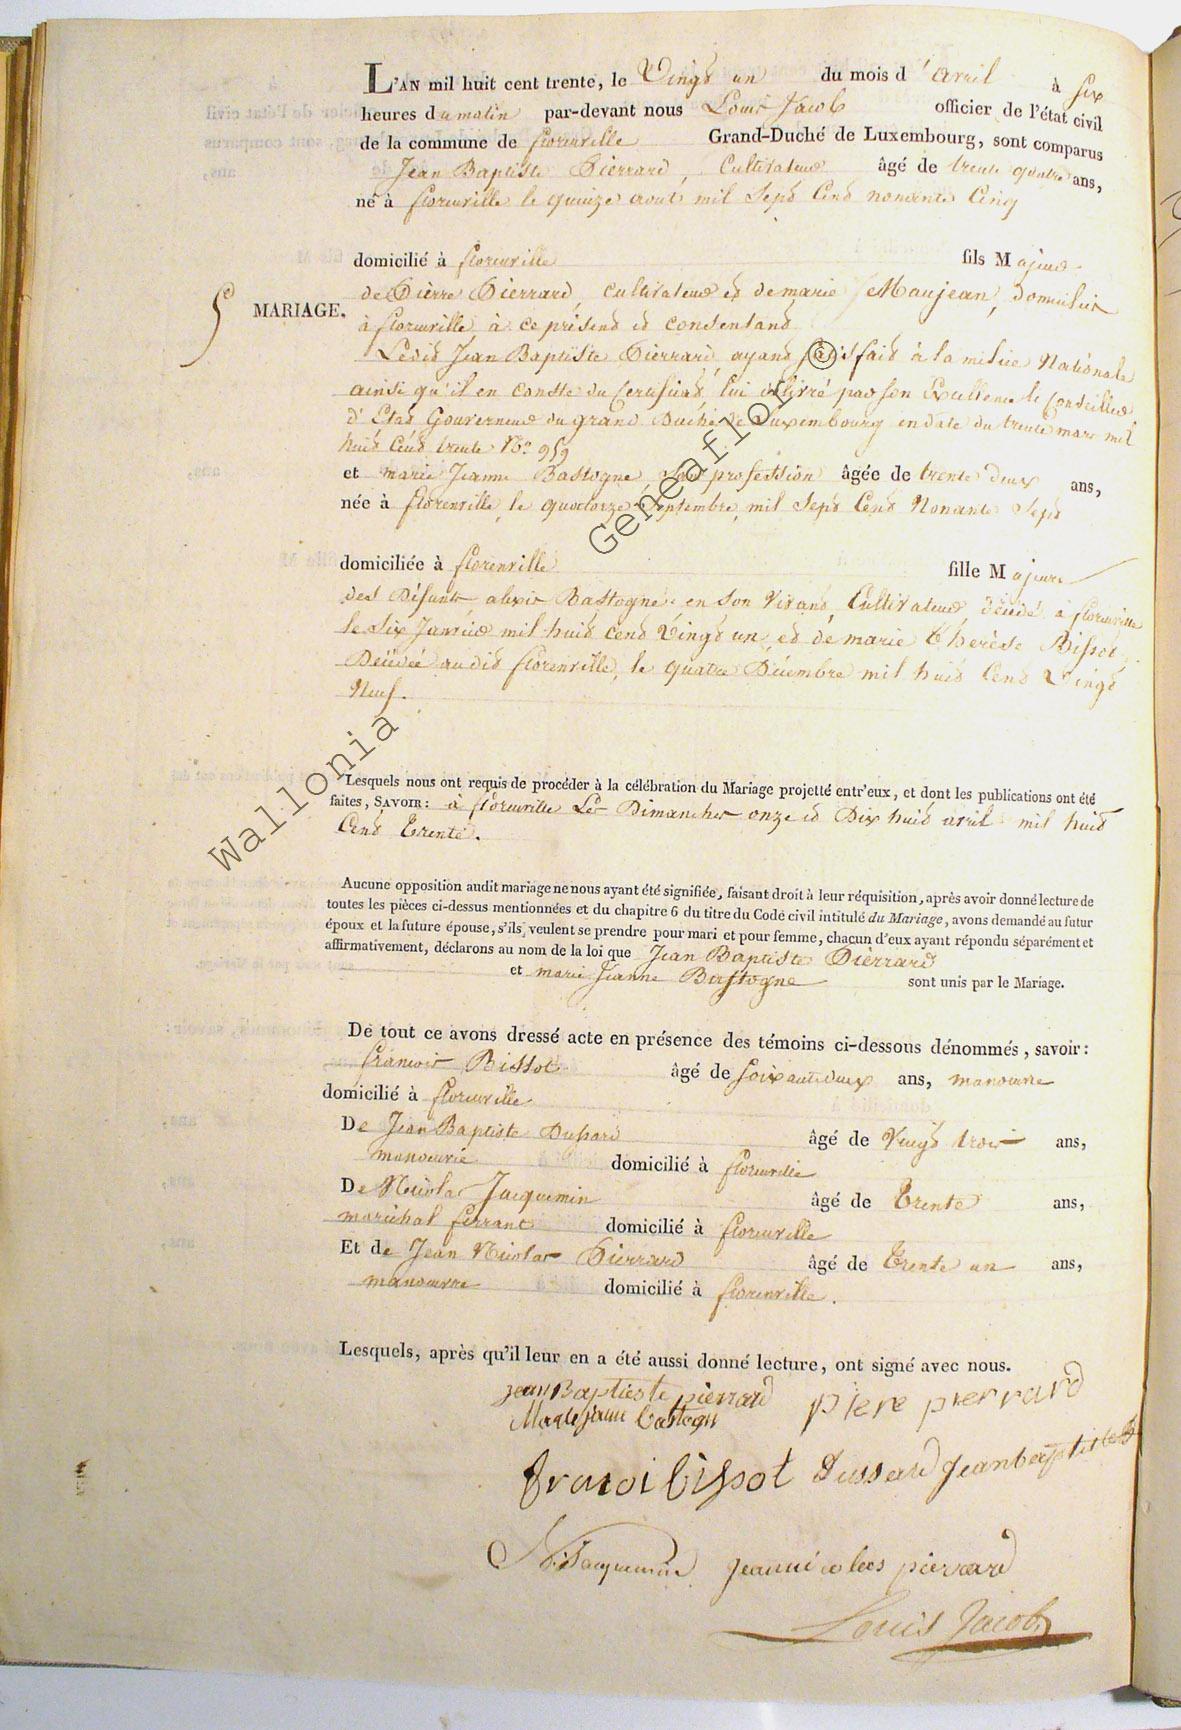 L'AN mil huit cent trente, le Vingt un du mois d'avril à six
heures du matin par-devant nous Louis Jacob officier de l'état civil
de la commune de florenville Grand-Duché de Luxembourg, sont comparus
Jean Baptiste Pierrard, Cultivateur âgé de trente quatre ans,
né à florenville le quinze aout mil Sept Cent nonante Cinq
domicilié à florenville fils Majeur
de Pierre Pierrard, cultivateur et de marie Maujean, Domicilié
5 MARIAGE.
à florenville à ce présent et consentant
Ledit Jean Baptiste Pierrard ayant satisfait à la milice Nationale
ainsi qu'il en conste du Certificat lui délivré par son Excellence le Conseiller
d'Etat Gouverneur du grand Duché de Luxembourg en date du trente mars mil
huit Cent trente No 959
et marie Jeanne Bastogne, Sans profession âgée de trente deux ans,
née à florenville, le quatorze Septembre mil Sept Cent Nonante Sept
domiciliée à florenville fille Majeure
des Défunts alexis Bastogne en son vivant, Cultivateur, décédé à florenville
le Six Janvier mil huit cent Vingt un, et de marie thérèse Bissot,
Décédée audit florenville, le quatre Décembre mil huit Cent Vingt
Neuf.
Lesquels nous ont requis de procéder à la célébration du Mariage projetté entr'eux, et dont les publications ont été
faites, SAVOIR: à florenville Les Dimanches onze et Dix huit avril mil huit
Cent Trente.
Aucune opposition audit mariage ne nous ayant été signifiée, faisant droit à leur réquisition, après avoir donné lecture de
toutes les pièces ci-dessus mentionnées et du chapitre 6 du titre du Code civil intitulé du Mariage, avons demandé au futur
époux et la future épouse, s'ils veulent se prendre pour mari et pour femme, chacun d'eux ayant répondu séparément et
affirmativement, déclarons au nom de la loi que Jean Baptiste Pierrard
et marie Jeanne Bastogne sont unis par le Mariage.
De tout ce avons dressé acte en présence des témoins ci-dessous dénommés, savoir:
francois Bissot âgé de soixante deux ans, manouvre
domicilié à florenville
De Jean Baptiste Dussard âgé de Vingt trois ans,
manouvre domicilié à florenville
De Nicolas Jacquemin âgé de Trente ans,
maréchal ferrant domicilié à florenville
Et de Jean Nicolas Pierrard âgé de Trente un ans,
manouvre domicilié à florenville.
Lesquels, après qu'il leur en a été aussi donné lecture, ont signé avec nous.
jean Baptieste pierrard piere pierrard
bastogn
bissot Dussard Jean baptiste
N. Jacquemin jean nicolas pierrard
Louis Jacob
Wallonia Geneaflor ©